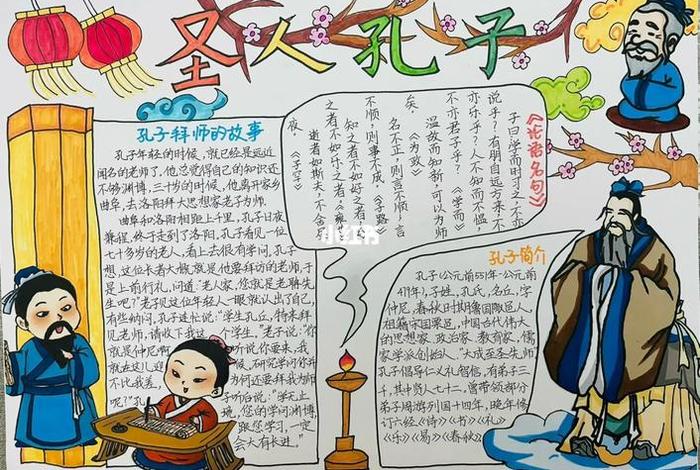 圣人孔子
孔子拜师的故事
孔子年轻的时候，就已经是远近
闻名的老师了，他总觉得自己的知识还
不够渊博，三十岁的时候，他离开家乡
曲阜，去洛阳拜大思想家老子为师。
曲阜和洛阳相距上千里，孔子日夜
兼程，终于走到了洛阳，孔子看见一位
七十多岁的老人，看上去很有学问，孔子
想，这位长者大概就是他要拜访的老师，于
是上前行礼，问道"老人家，您就是老聃先
生吧？"老子见这位年轻人一眼就认出了自己，
有些纳闷，孔子连忙说："学生孔丘，特来拜
见老师，请收下我这个学生。"老子说："你
就是仲尼啊
就在这儿迎候，研究学问你并
不比我差，为何还要拜我为师
呢？"孔子听后说："学无止
境，您的学问渊博，
跟您学习，一定
会大有长进。"
《论语名句》
子曰学而时习之不亦
说乎？有朋自远方来，不
亦乐乎？人不知而不愠，
不亦君子乎？《学而》
温故而知新，可以为师
矣。《为政》
名不正，则言不顺，言
不顺，则事不成。《子路》
知之者不如好之者，好
之者不如乐之者。《雍
逝者如斯夫，不舍昼
夜。《子罕》
小红书
孔子简介
孔子（公元前551年-公元前
479年），子姓，孔氏，名丘，字
仲尼，春秋时期鲁国陬邑人，
祖籍宋国栗邑，中国古代伟大
的思想家、政治家、教育家，儒
家学派创始人、"大成至圣先师"
孔子倡导仁义礼智信，有弟子三
千，其中贤人七十二，曾带领部分
弟子周游列国十四年，晚年修
订六经《诗》《书》《礼》
《乐》《易》《春秋》